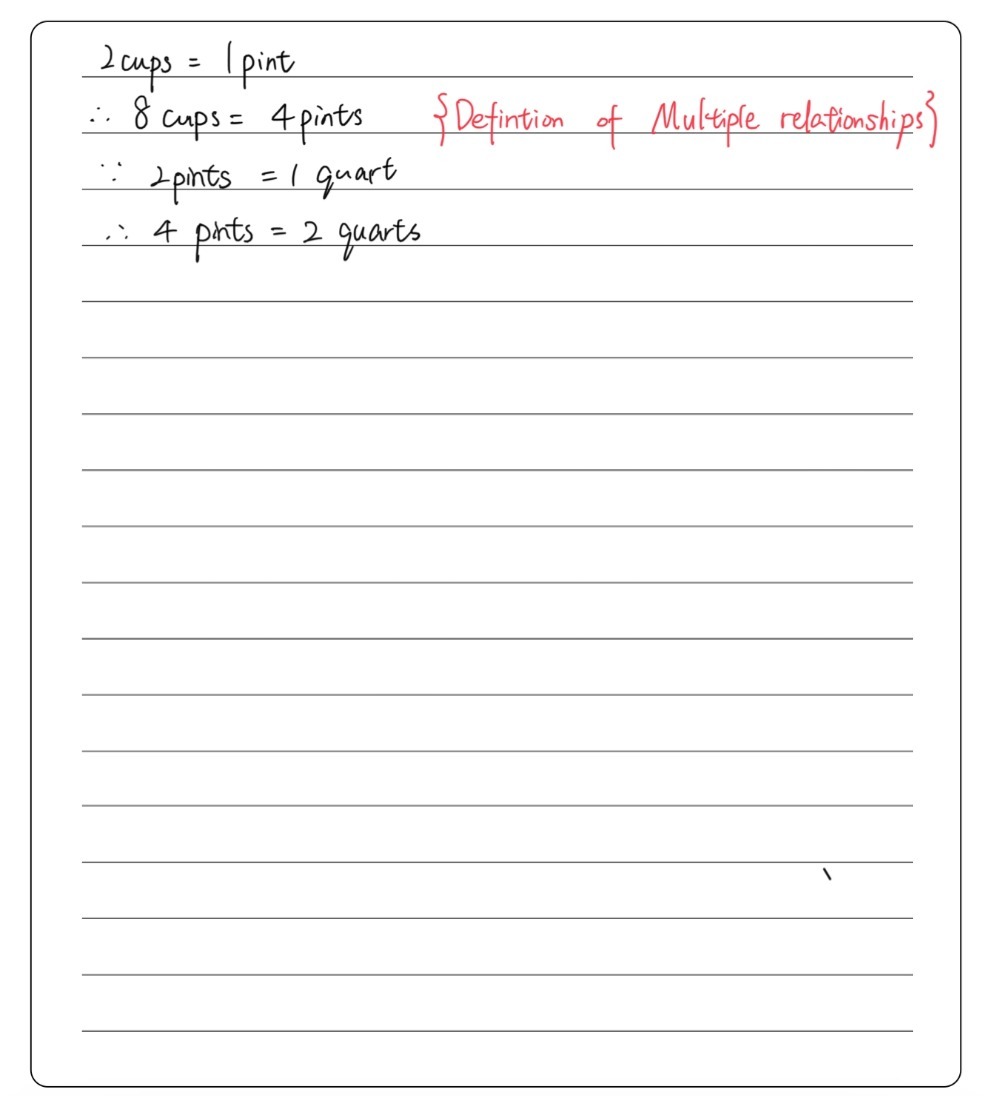 2 cups = 1 pint
∴ 8 cups = 4 pints {Defintion of Multiple relationships}
∵ 2 pints = 1 quart
∴ 4 pints = 2 quarts